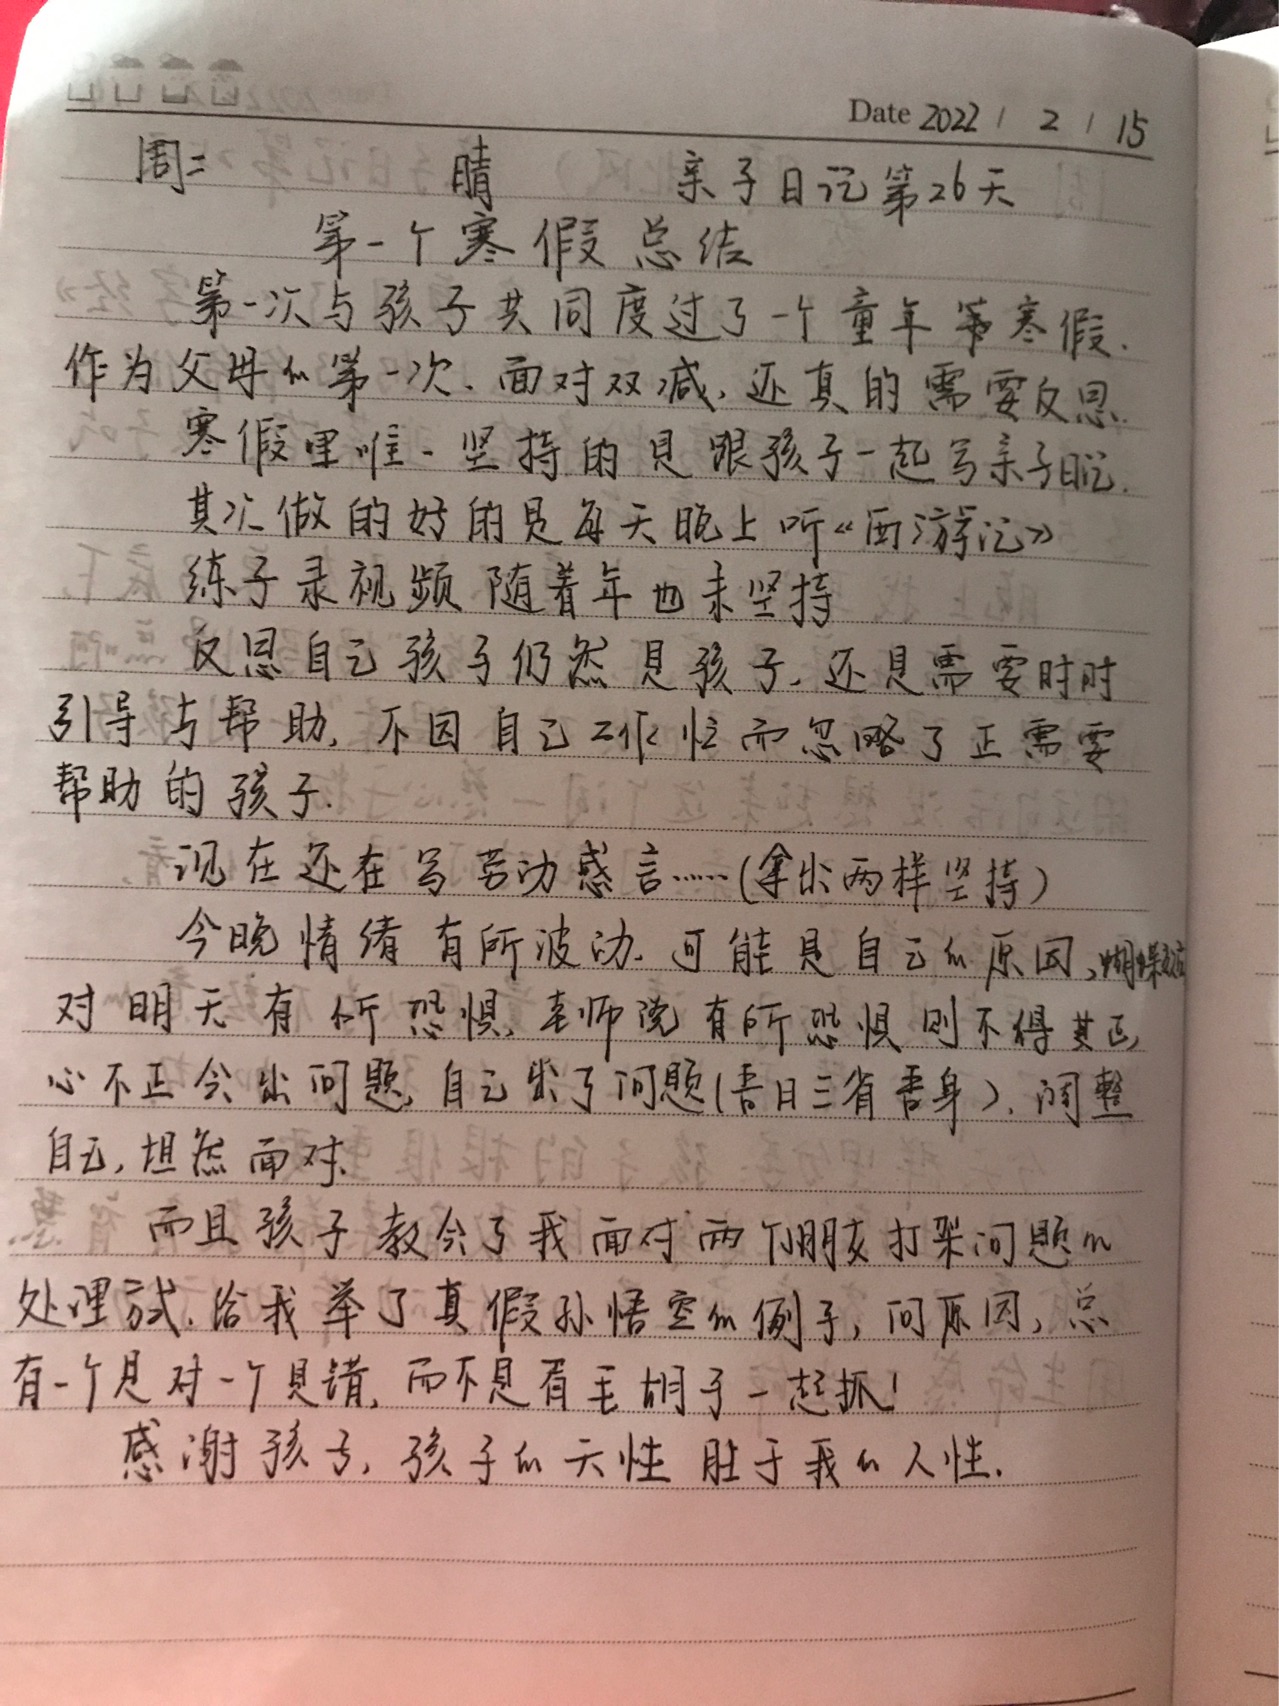 Date 2022 / 2 / 15
周二 晴 亲子日记第26天
第一个寒假总结
第一次与孩子共同度过了一个童年第寒假.
作为父母的第一次.面对双减,还真的需要反思.
寒假里唯一坚持的是跟孩子一起写亲子日记.
其次做的好的是每天晚上听《西游记》
练字录视频随着年也未坚持
反思自己孩子仍然是孩子,还是需要时时
引导与帮助,不因自己工作忙而忽略了正需要
帮助的孩子.
现在还在写劳动感言……(拿出两样坚持)
今晚情绪有所波动.可能是自己的原因,蝴蝶效应
对明天有所恐惧,老师说有所恐惧则不得其正,
心不正会出问题,自己出了问题(吾日三省吾身).调整
自己,坦然面对.
而且孩子教会了我面对两个朋友打架问题的
处理方式.给我举了真假孙悟空的例子,问原因,总
有一个是对一个是错,而不是眉毛胡子一起抓!
感谢孩子,孩子的天性胜于我的人性.